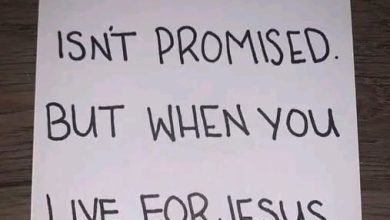 ISN'T PROMISED.
BUT WHEN YOU
LIVE FOR JESUS